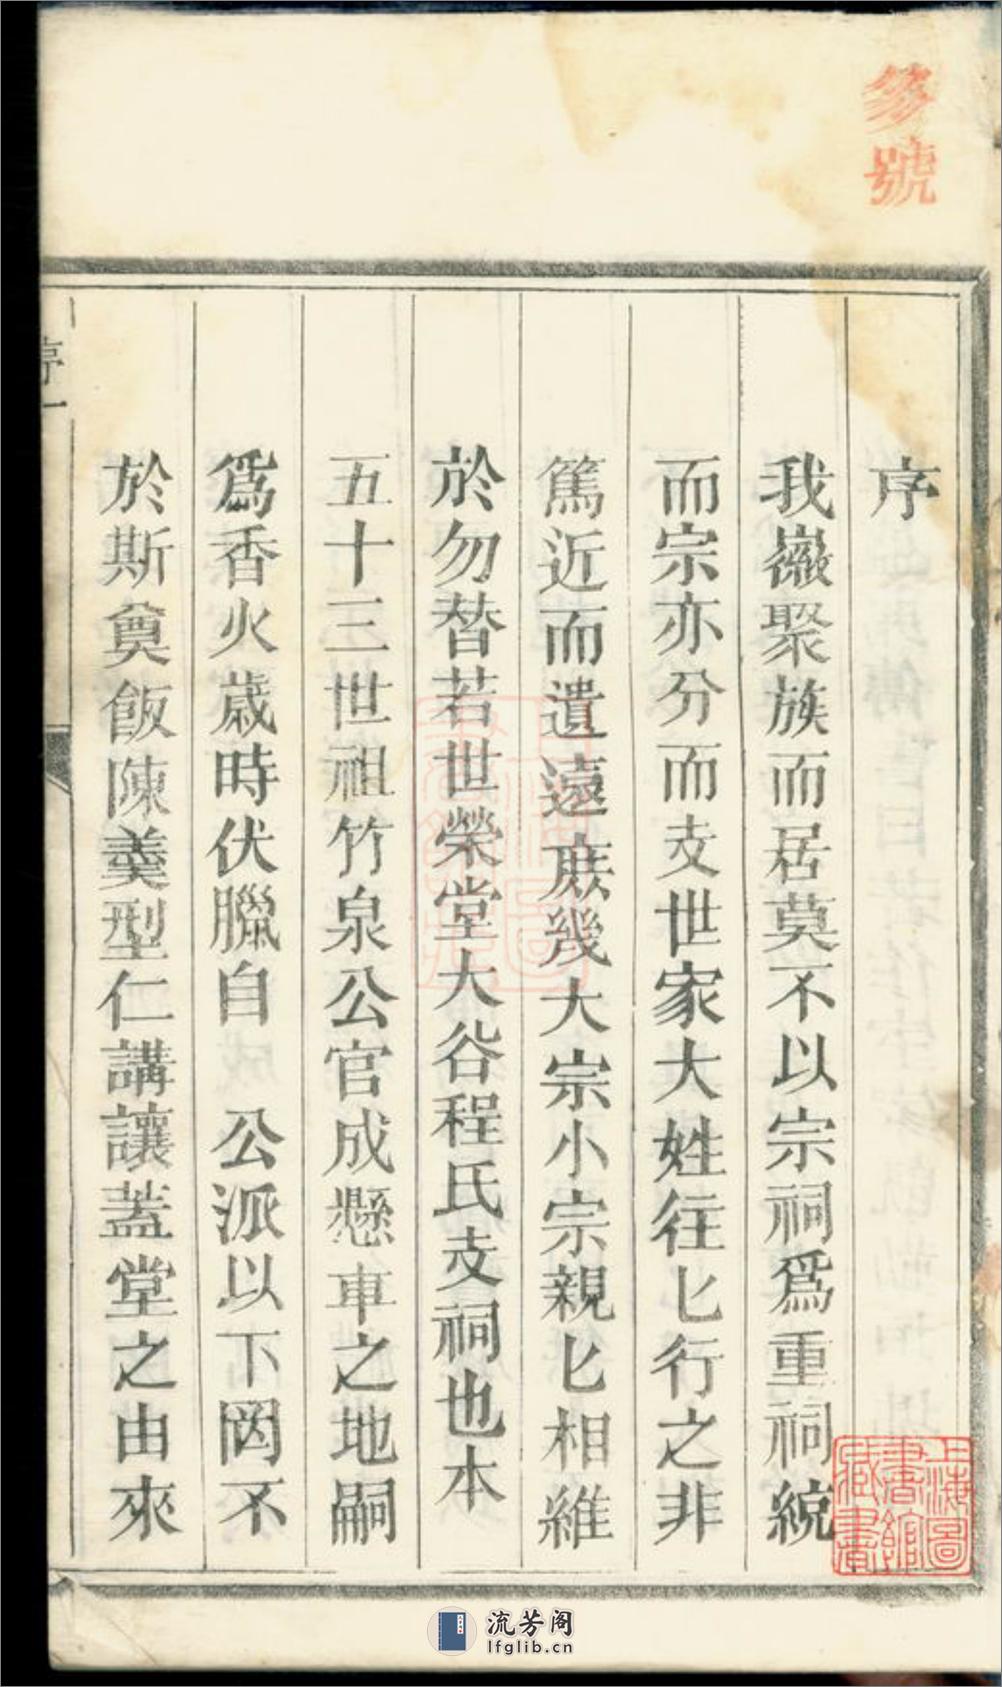 參號
序
我嶶聚族而居莫不以宗祠爲重祠統
而宗亦分而支世家大姓往匕行之非
篤近而遺遠庶幾大宗小宗親匕相維
於勿替若世榮堂大谷程氏支祠也本
五十三世祖竹泉公官成懸車之地嗣
爲香火歲時伏臘自　公派以下罔不
於斯奠飯陳羹型仁講讓蓋堂之由來
序一
上海圖書館藏書
流芳阁
lfglib.cn